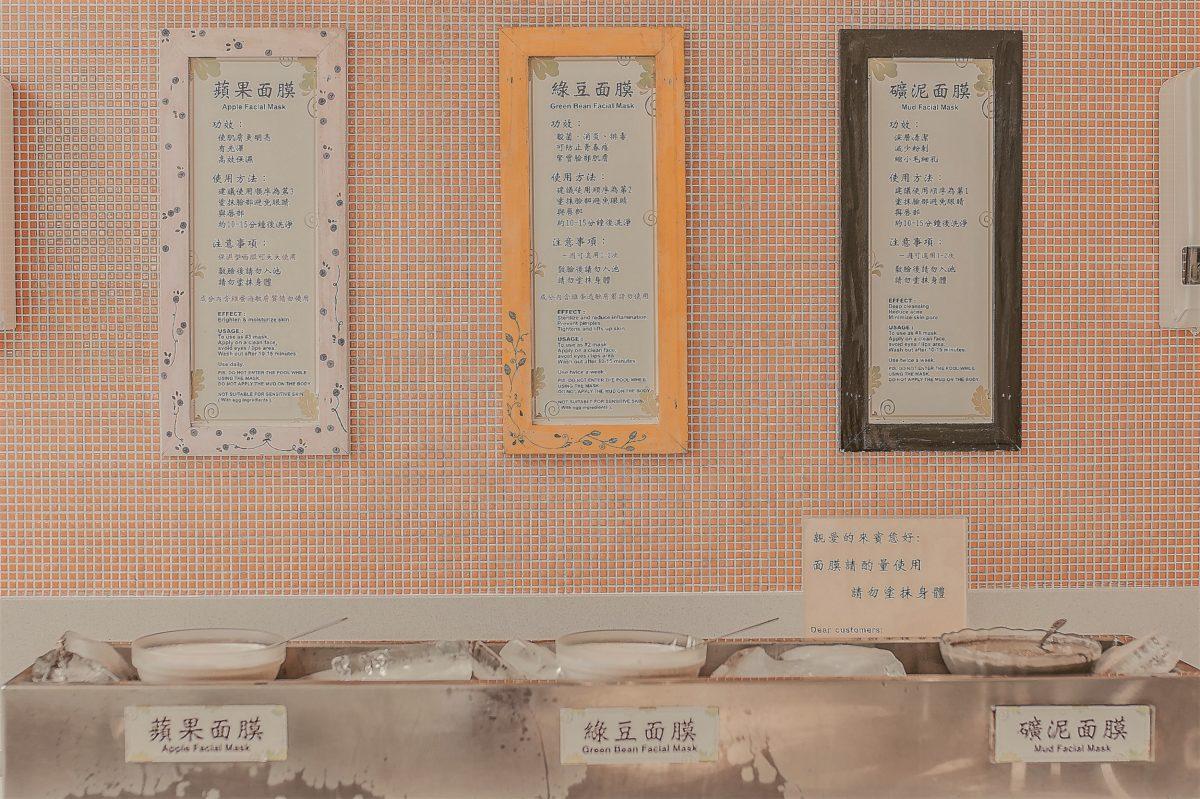 蘋果面膜
Apple Facial Mask
功效：
使肌膚更明亮
有光澤
高效保濕
使用方法：
建議使用順序為第3
塗抹臉部避免眼睛
與唇部
約10-15分鐘後洗淨
注意事項：
保濕型面膜可天天使用
敷臉後請勿入池
請勿塗抹身體
成分內含雞蛋過敏膚質請勿使用
EFFECT :
Brighten & moisturize skin
USAGE :
To use as #3 mask.
Apply on a clean face,
avoid eyes / lips area.
Wash out after 10-15 minutes
Use daily.
PIS. DO NOT ENTER THE POOL WHILE
USING THE MASK.
DO NOT APPLY THE MUD ON THE BODY.
NOT SUITABLE FOR SENSITIVE SKIN
( With egg ingredients ).
綠豆面膜
Green Bean Facial Mask
功效：
殺菌、消炎、排毒
可防止青春痘
緊實臉部肌膚
使用方法：
建議使用順序為第2
塗抹臉部避免眼睛
與唇部
約10-15分鐘後洗淨
注意事項：
一週可適用1-2次
敷臉後請勿入池
請勿塗抹身體
成分內含雞蛋過敏膚質請勿使用
EFFECT :
Sterilize and reduce inflammation
Prevent pimples
Tightens and lifts up skin
USAGE :
To use as #2 mask.
Apply on a clean face,
avoid eyes / lips area.
Wash out after 10-15 minutes
Use twice a week.
PIS. DO NOT ENTER THE POOL WHILE
USING THE MASK.
DO NOT APPLY THE MUD ON THE BODY.
NOT SUITABLE FOR SENSITIVE SKIN
( With egg ingredients ).
礦泥面膜
Mud Facial Mask
功效：
深層清潔
減少粉刺
縮小毛細孔
使用方法：
建議使用順序為第1
塗抹臉部避免眼睛
與唇部
約10-15分鐘後洗淨
注意事項：
一週可適用1-2次
敷臉後請勿入池
請勿塗抹身體
EFFECT :
Deep cleansing
Reduce acne
Minimize skin pore
USAGE :
To use as #1 mask.
Apply on a clean face,
avoid eyes / lips area.
Wash out after 10-15 minutes
Use twice a week.
PIS. DO NOT ENTER THE POOL WHILE
USING THE MASK.
DO NOT APPLY THE MUD ON THE BODY.
親愛的來賓您好:
面膜請酌量使用
請勿塗抹身體
Dear customers:
蘋果面膜
Apple Facial Mask
綠豆面膜
Green Bean Facial Mask
礦泥面膜
Mud Facial Mask